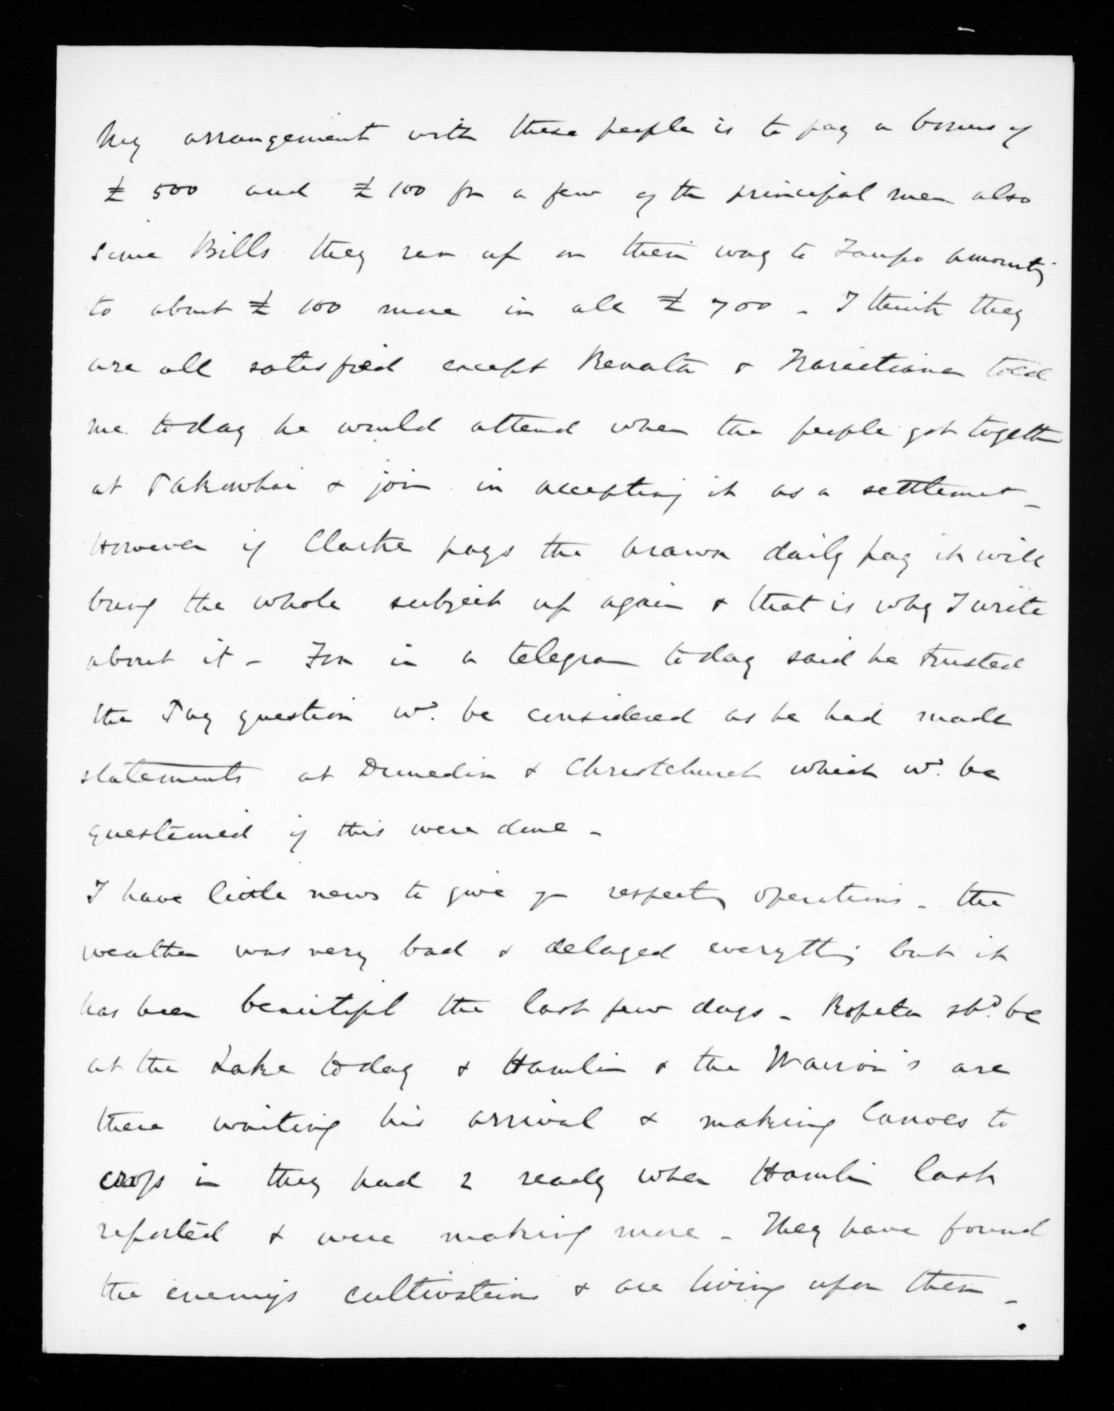 My arrangement with these people is to pay a bonus of
£500 and £100 for a few of the principal men also
some Bills they ran up on their way to Taupo amounting
to about £100 more in all £700 - I think they
are all satisfied except Renata & Karaitiana told
me today he would attend when the people got together
at Pakowhai & join in accepting it as a settlement -
However if Clarke pays the Arawa daily pay it will
bring the whole subject up again & that is why I write
about it - Fox in a telegram today said he trusted
the Pay question wd. be considered as he had made
statements at Dunedin & Christchurch which wd. be
questioned if this were done -
I have little news to give you respecting operations - the
weather was very bad & delayed everything but it
has been beautiful the last few days - Ropata shd. be
at the Lake today & Hamlin & the Wairoa's are
there waiting his arrival & making Canoes to
cross in they had 2 ready when Hamlin last
reported & were making more - They have found
the enemys cultivations & are living upon them -